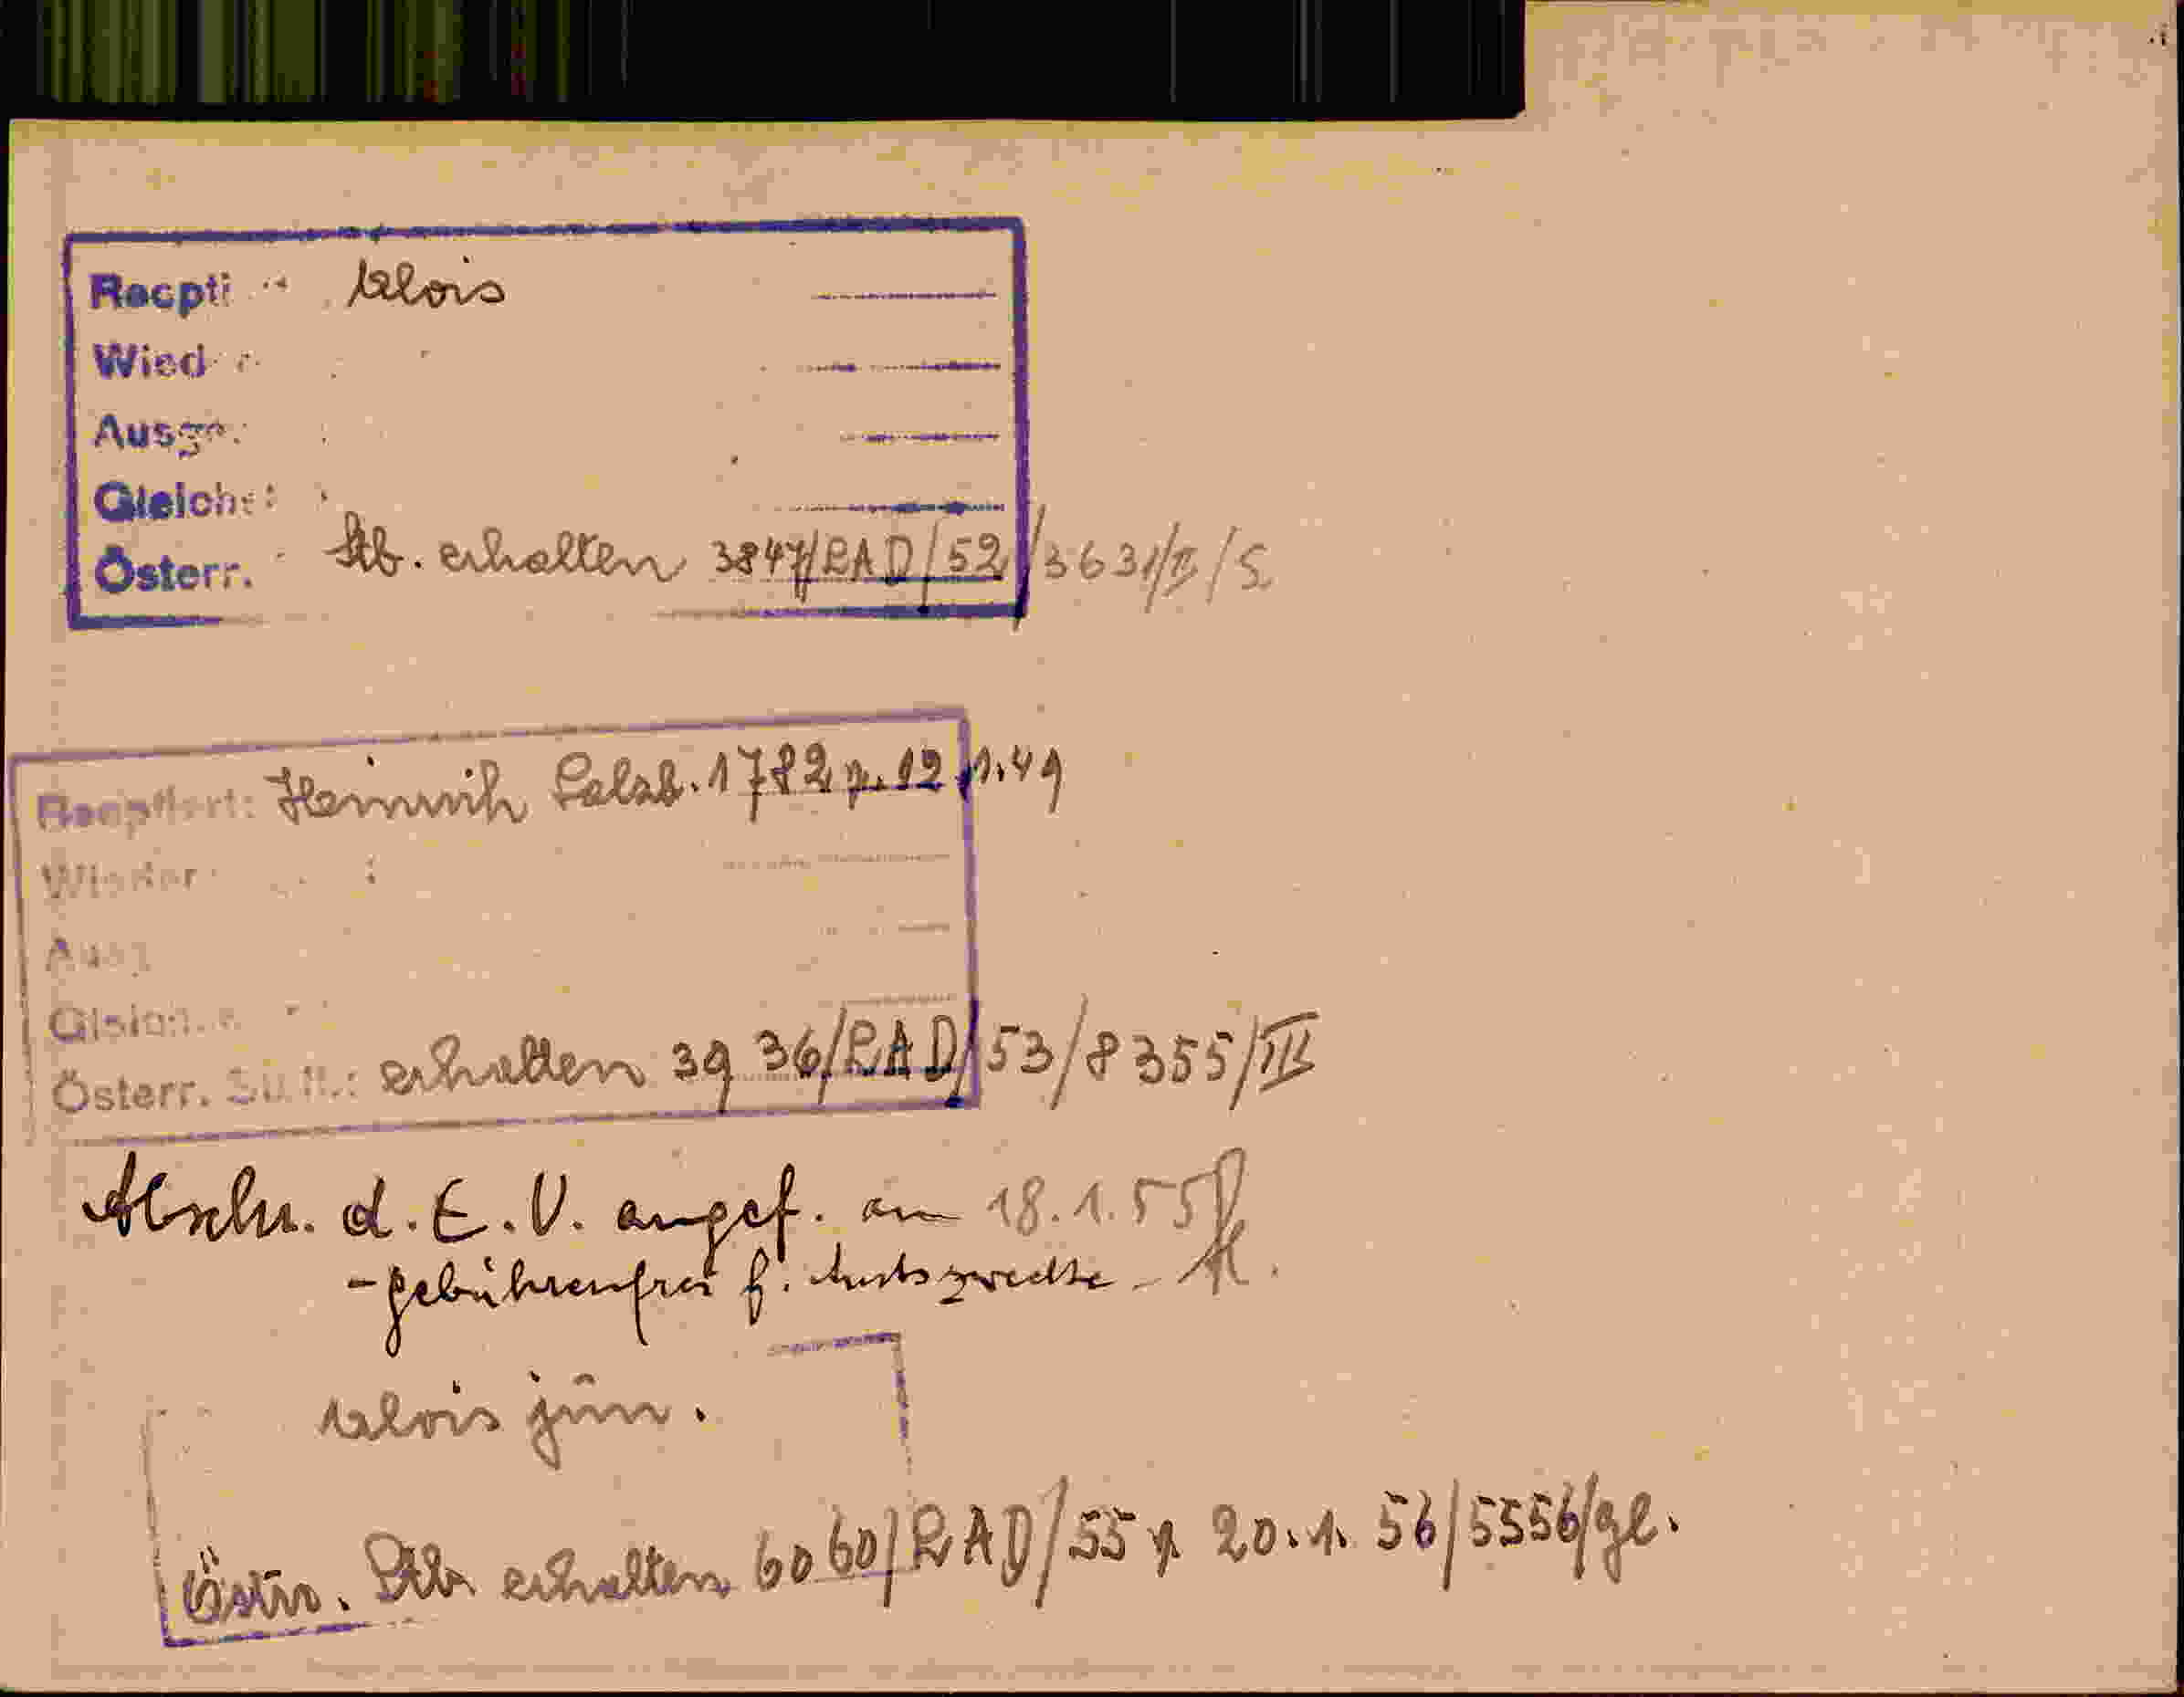 Recpti Alois
Wied
Ausge.
Gleichst
Österr. Stb. erhalten 3847/RAD/52/3631/II/S
Recptiert: Heinrich Salzb. 1782 v. 12.1.49
Wieder
Ausg
Gleich
Österr. erhalten 3936/RAD/53/8355/III
Abschr. d. E. V. angef. am 18.1.55
- gebührenfrei f. Amtszwecke -
Alois jun.
Österr. Stb erhalten 6060/RAD/55 v 20.1.56/5556/gl.